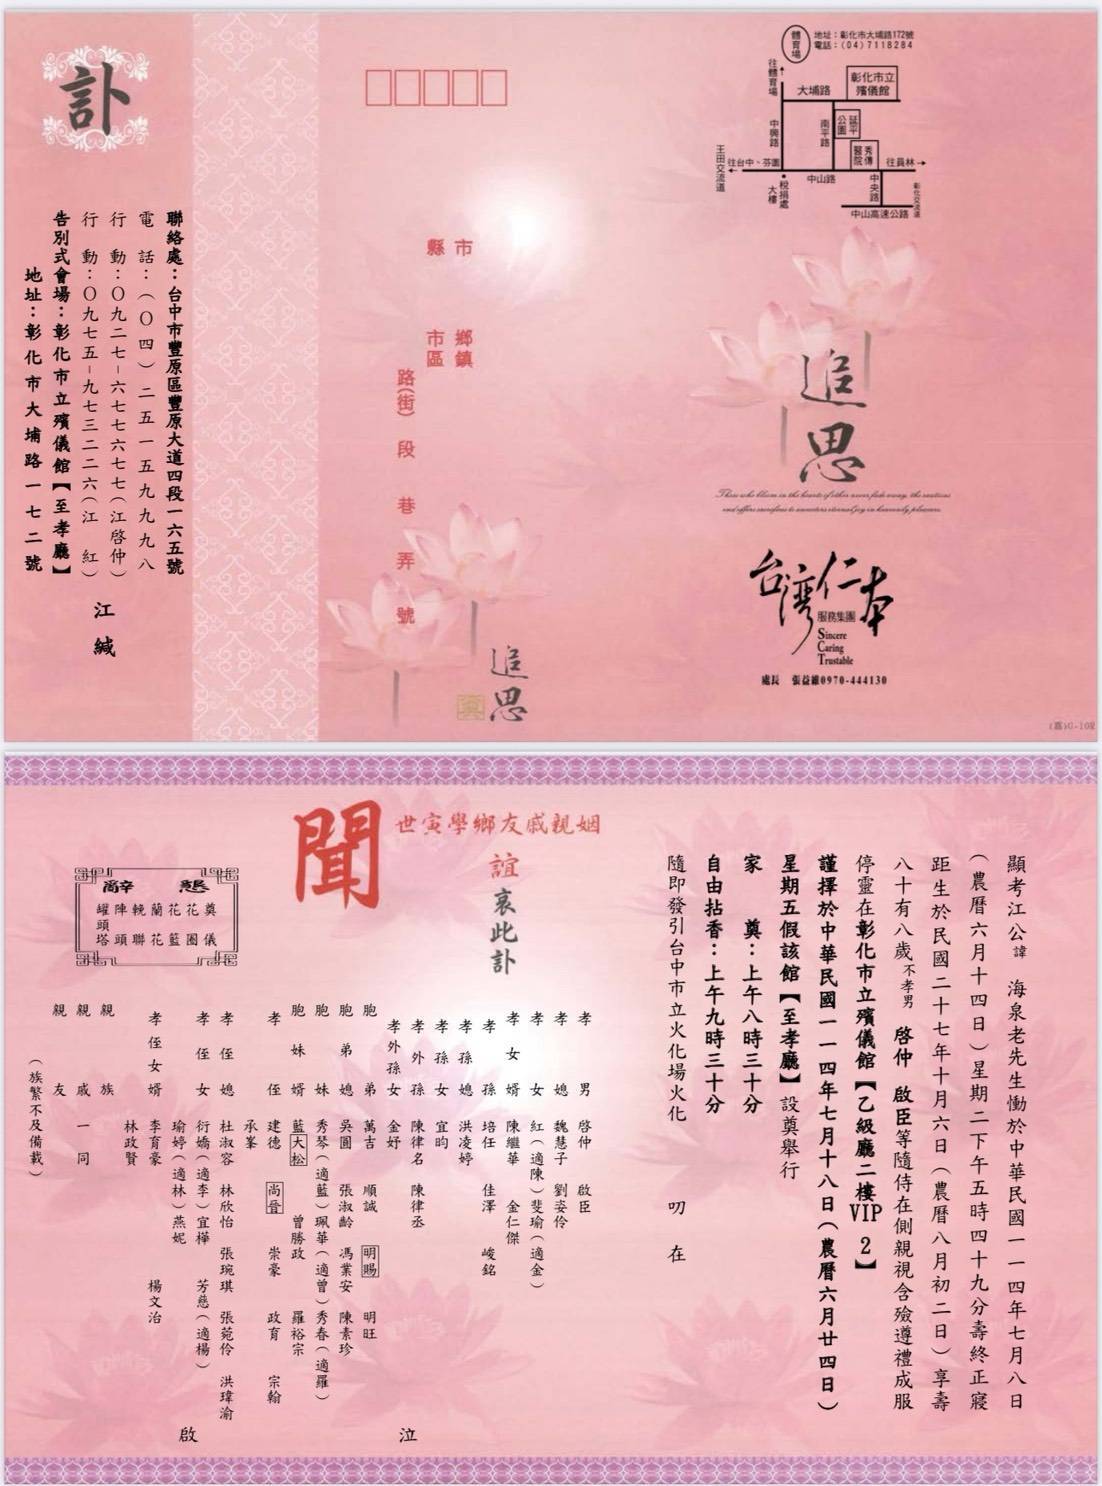 訃
聯絡處：台中市豐原區豐原大道四段一六五號
電話：(〇四)二五一五九九九八
行動：〇九二七-六七七六七七(江啓仲)
行動：〇九七五-九七三二二六(江 紅)
告別式會場：彰化市立殯儀館【至孝廳】
地址：彰化市大埔路一七二號
江緘
市 鄉鎮
縣 市區
路(街) 段 巷 弄 號
追思
體育場
地址：彰化市大埔路172號
電話：(04)7118284
往體育場
大埔路
彰化市立殯儀館
中興路
南平路
延平公園
秀傳醫院
王田交流道
往台中、芬園
往員林
中山路
稅捐處大樓
中央路
彰化交流道
中山高速公路
追思
Those who bloom in the hearts of other never fade away, the cautious
and offers sacrifices to ancestors eternal joy in heavenly pleasures.
台灣仁本
服務集團
Sincere
Caring
Trustable
處長 張益維0970-444130
顯考江公諱 海泉老先生慟於中華民國一一四年七月八日
(農曆六月十四日)星期二下午五時四十九分壽終正寢
距生於民國二十七年十月六日(農曆八月初二日)享壽
八十有八歲不孝男 啓仲 啟臣等隨侍在側親視含殮遵禮成服
停靈在彰化市立殯儀館【乙級廳二樓VIP 2】
謹擇於中華民國一一四年七月十八日(農曆六月廿四日)
星期五假該館【至孝廳】設奠舉行
家 奠：上午八時三十分
自由拈香：上午九時三十分
隨即發引台中市立火化場火化 叨在
世寅學鄉友戚親姻
誼哀此訃
聞
懇辭
奠儀
花圈
花籃
蘭花
輓聯
陣頭
罐頭塔
孝男 啓仲 啟臣
孝媳 魏慧子 劉姿伶
孝女 紅(適陳) 斐瑜(適金)
孝女婿 陳繼華 金仁傑
孝孫 培任 佳澤 峻銘
孝孫媳 洪凌婷
孝孫女 宜昀
孝外孫 陳律名 陳律丞
孝外孫女 金妤
胞弟 萬吉 順誠 明賜 明旺
胞弟媳 吳圓 張淑齡 馮業安 陳素珍
胞妹 秀琴(適藍) 珮華(適曾) 秀春(適羅)
胞妹婿 藍大松 曾勝政 羅裕宗
孝侄 建德 尚晉 崇豪 政育 宗翰
承峯
孝侄媳 杜淑容 林欣怡 張琬琪 張菀伶 洪瑋渝
孝侄女 衍嬌(適李) 宜樺 芳慈(適楊)
瑜婷(適林) 燕妮
孝侄女婿 李育豪 楊文治
林政賢
親族
親戚一同
親友
(族繁不及備載)
泣啟